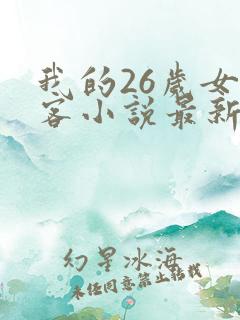 我的26歲女
客小說最新
幻星冰海
未经同意禁止转载